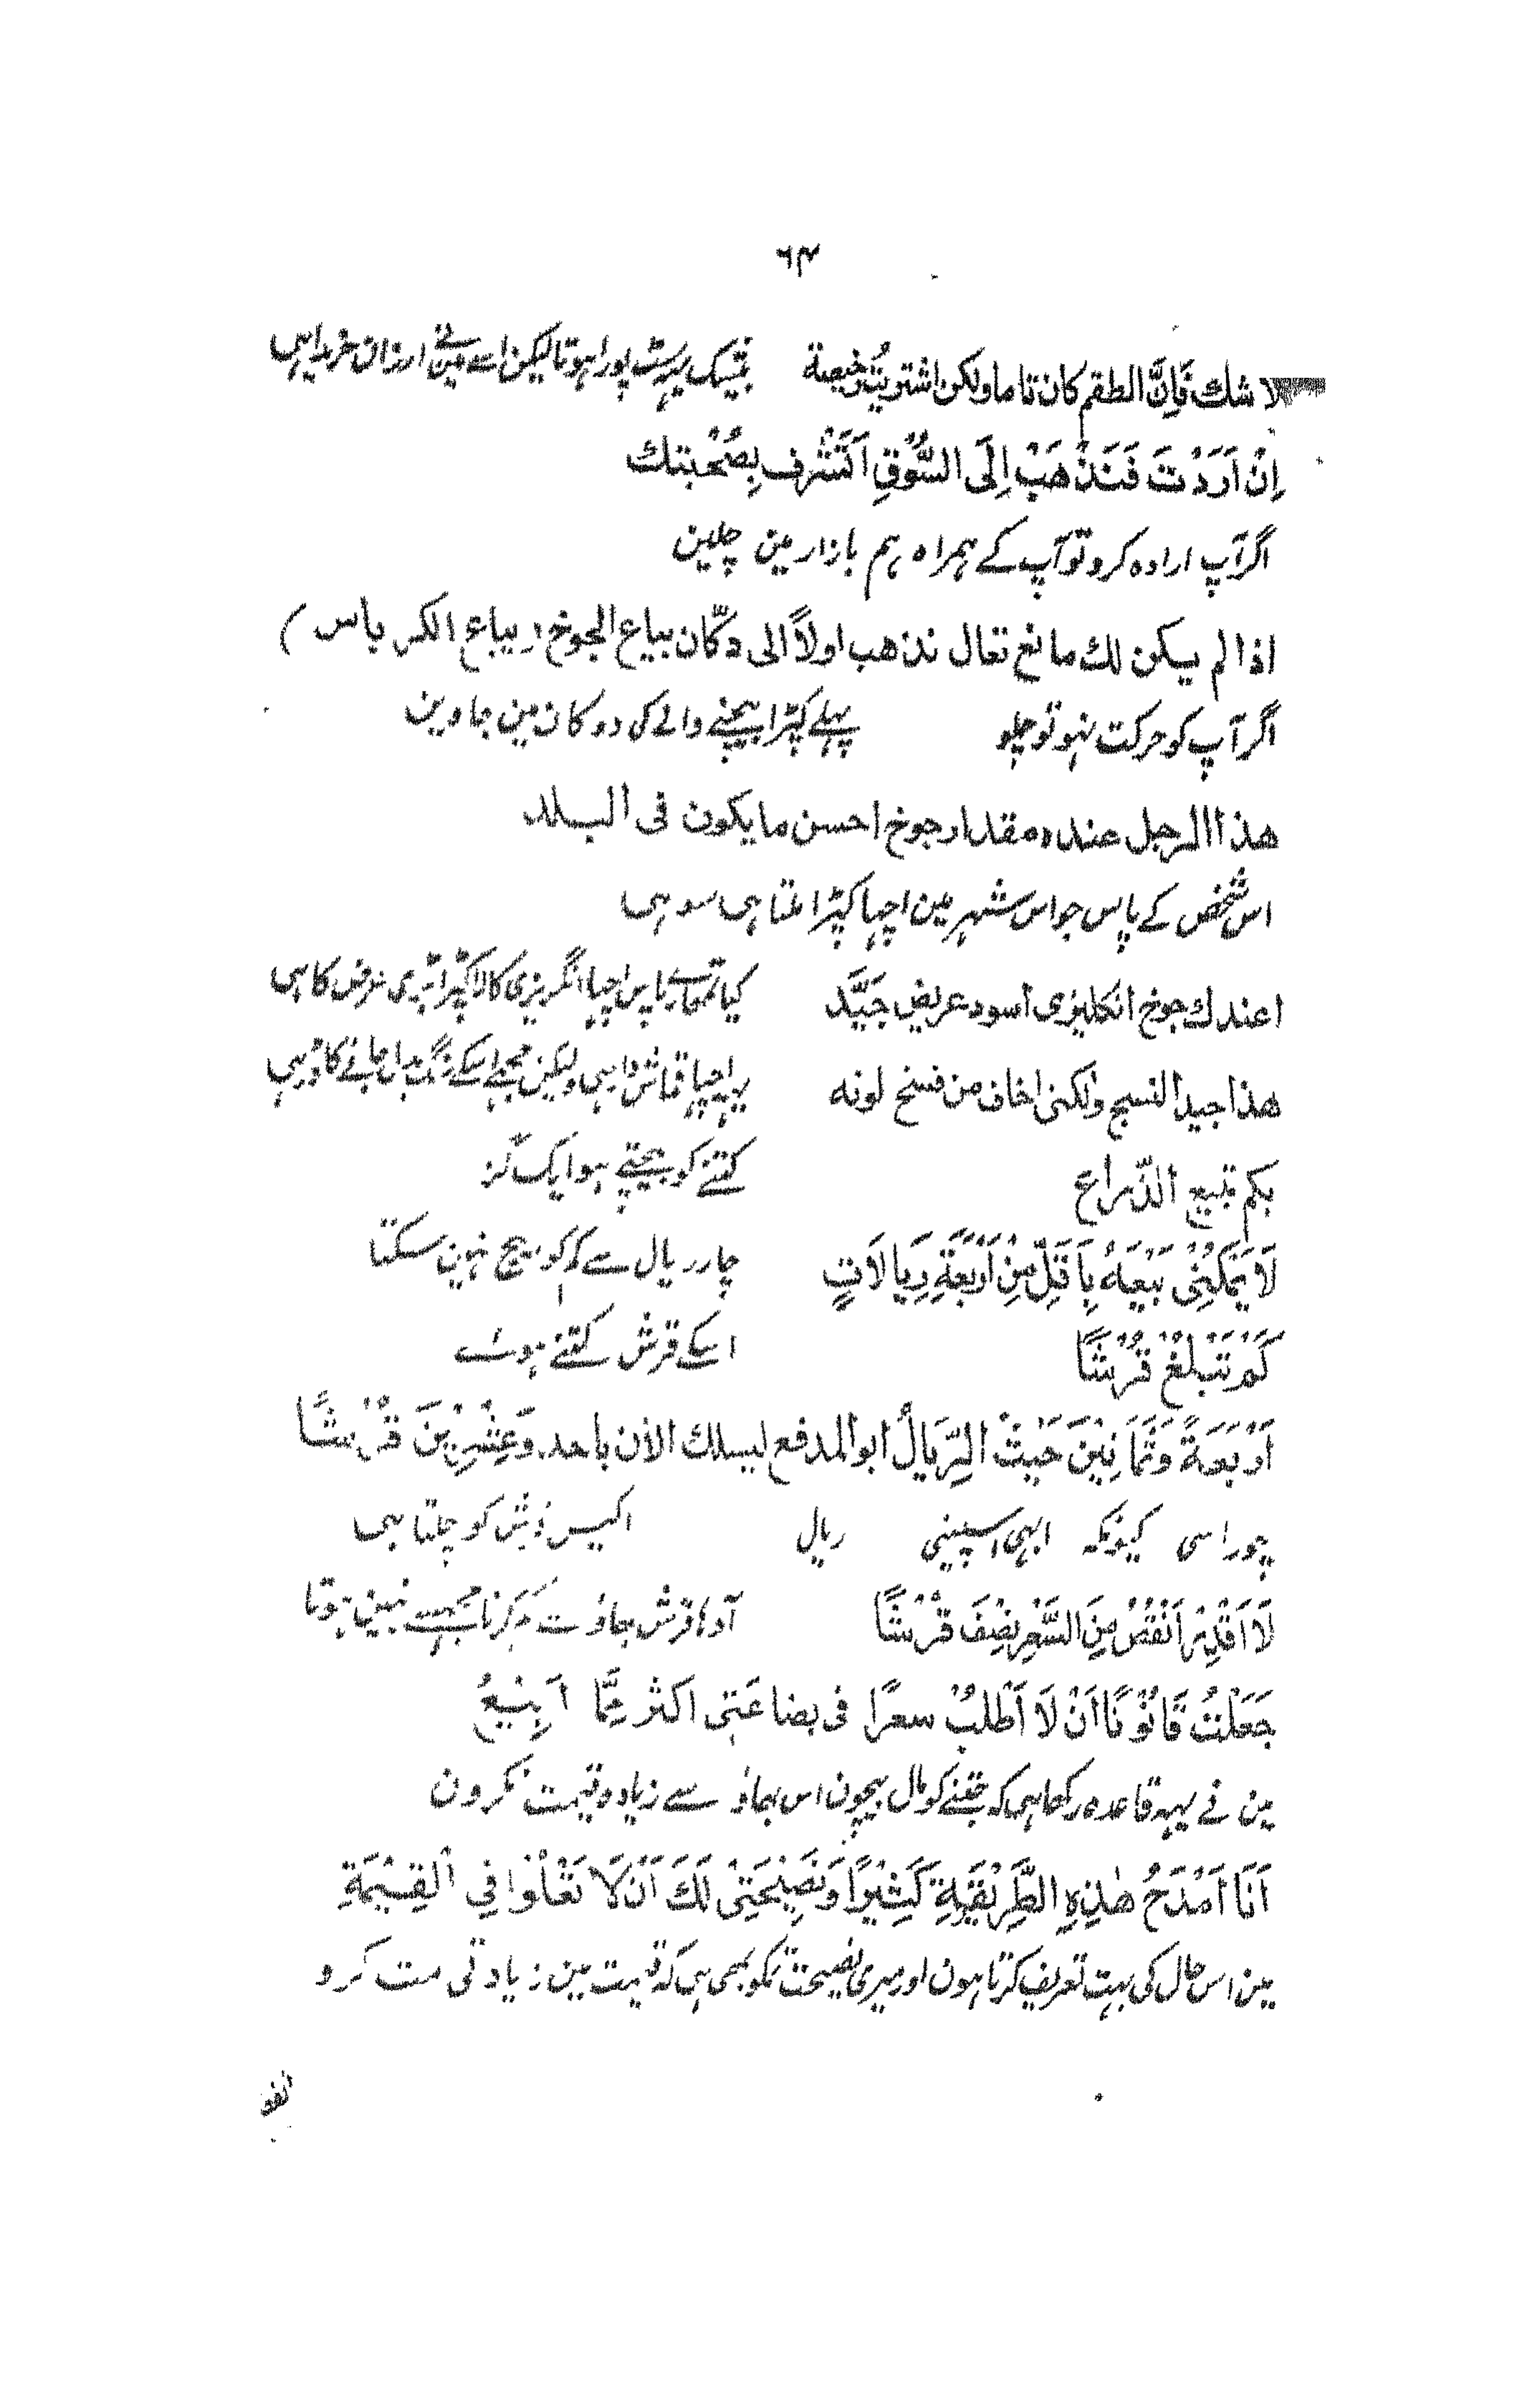 ٦٤
لا شك فَاِنَّ الطقم كان تاما ولكن اشتريتُ رخيصة بیشک یہہ سٹ پورا ہوتا لیکن اسے مین نے ارزان خریدا ہی
اِنْ اَرَدْتَ فَنَذْهَبْ اِلَى السُّوْقِ اَتَشْرف بِصُحْبتك
اگر آپ ارادہ کرو تو آپ کے ہمراہ ہم بازار مین چلین
اذا لم يكن لك مانع تعال نذهب اولاً الى دكّان بياع الجوخ ( بياع الكرباس )
اگر آپ کو حرکت نہو تو چلو پہلے کپڑا بیچنے والے کی دوکان مین جاوین
هذا الرجل عنده مقدار جوخ احسن ما يكون فى البلد
اس شخص کے پاس جو اس شہر مین اچہا کپڑا ملتا ہی سو ہی
اعندك جوخ انكليزى اسود عريض جَيَّد کیا تمہارے پاس اچہا انگریزی کالا کپڑا بڑی عرض کا ہی
هذا جيد النسج ولكنى اخاف من فسخ لونه یہہ اچہا قماش دار ہی ولیکن مجہے اسکے رنگ بدل جانے کا ڈر ہی
بكم تبيع الذّراع کتنے کو بیچتے ہو ایک گز
لَا يَمْكَنُنِىْ بَيْعَهُ بِاَقَلِّ مِنْ اَرْبَعَةِ رِيَالَاتٍ چار ریال سے کم کو بیچ نہین سکتا
كَمْ تَبْلُغْ قُرْشًا اسکے قرش کتنے ہوے
اَرْبَعَةً وَثَمَانِيْنَ حَيْثُ الرِّيَالُ ابو المدفع ليسلك الأن باحد وَعِشْرِيْنَ قُرْشًا
چوراسی کیونکہ ابہی اسپینی ریال اکیس قرش کو چلتا ہی
لَا اَقْدِرُ اَنْقُصُ مِنَ السَّعْرِ نِصْفَ قُرْشًا آدہا قرش بہاؤ سے کم کرنا مجہسے نہین ہوتا
جَعَلْتُ قَانُوْنًا اَنْ لَا اَطْلُبُ سعرًا فى بضاعَتِى اكثر مِمَّا اَبِيْعُ
مین نے یہہ قاعدہ رکہا ہی کہ جتنے کو مال بیچون اس بہاؤ سے زیادہ قیمت نکرون
اَنَا اَمْدَحُ هٰذِهِ الطَّرِيْقَةِ كَثِيْرًا وَنَصِيْحَتِىْ لَكَ اَنْ لَا تَغْلُوْا فِى الْقِيْمَةِ
مین اس حال کی بہت تعریف کرتا ہون اور میری نصیحت تمکو بہی ہی کہ قیمت مین زیادتی مت کرو